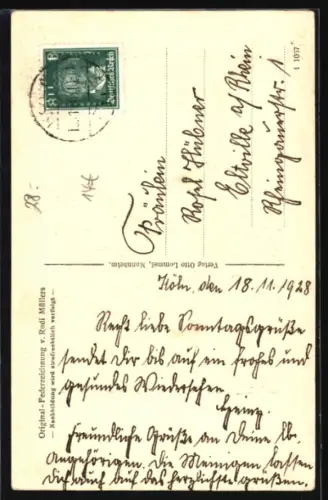 Köln, den 18.11.1928
Recht liebe Sonntagsgrüße
sendet Dir bis auf ein frohes und
gesundes Wiedersehen
Heinz.
Freundliche Grüße an Deine lb.
Angehörigen. Die Meinigen lassen
Dich auch auf das herzlichste grüßen.
Fräulein
Rosel Hübner
Eltville a/Rhein
Rheingauerstr. 1
Verlag Otto Lommel, Mannheim.
Original-Federzeichnung v. Rudi Müllers
— Nachbildung wird strafrechtlich verfolgt —
28.-
14€
Deutsches Reich
8